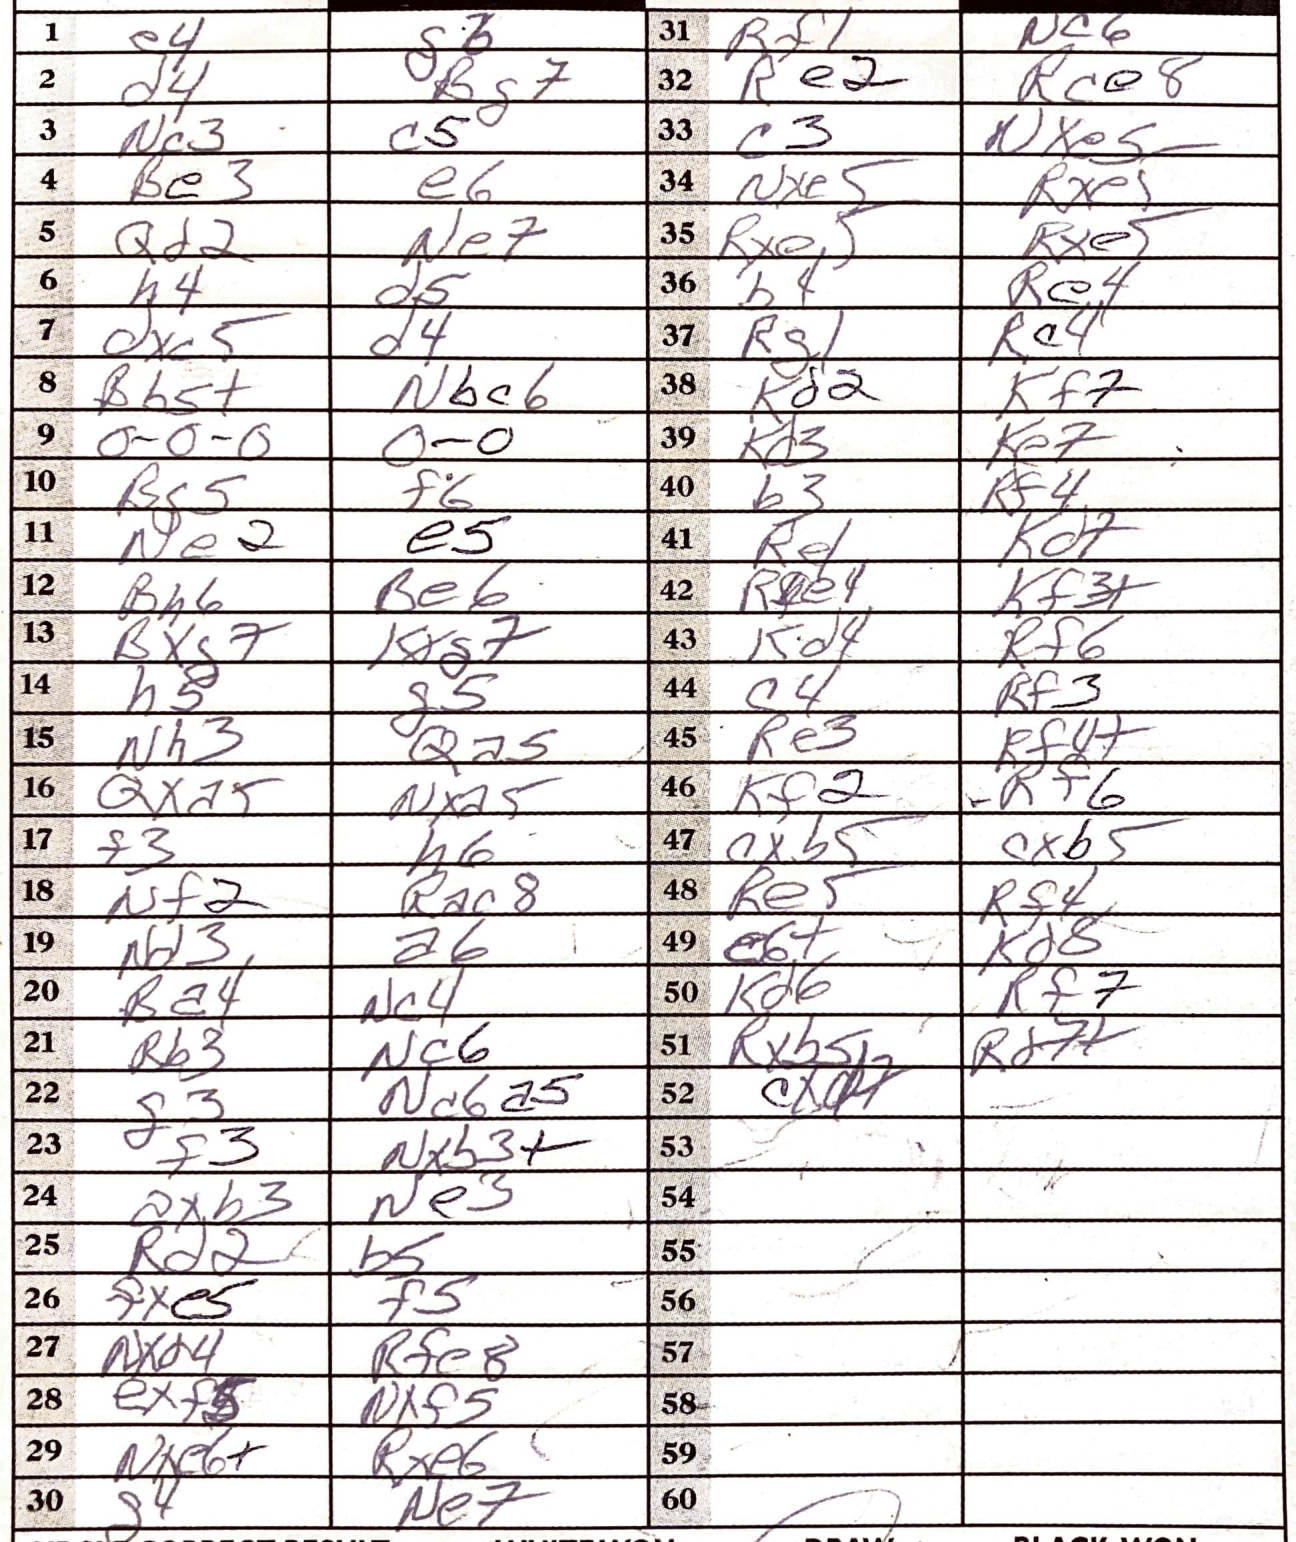 1 e4 g6 31 Rf1 Nc6
2 d4 Bg7 32 Re2 Rce8
3 Nc3 c5 33 c3 Nxe5
4 Be3 e6 34 Nxe5 Rxe5
5 Qd2 Ne7 35 Rxe5 Rxe5
6 h4 d5 36 b4 Re4
7 dxc5 d4 37 Rg1 Rc4
8 Bb5+ Nbc6 38 Kd2 Kf7
9 0-0-0 0-0 39 Kd3 Ke7
10 Bg5 f6 40 b3 Rf4
11 Ne2 e5 41 Re1 Kd7
12 Bh6 Be6 42 Re4 Kf3+
13 Bxg7 Kxg7 43 Kd4 Rf6
14 h5 g5 44 c4 Rf3
15 Nh3 Qa5 45 Re3 Rf4+
16 Qxa5 Nxa5 46 Kf2 Rf6
17 f3 h6 47 cxb5 cxb5
18 Nf2 Rac8 48 Re5 Rf4
19 Nd3 a6 49 c6+ Kd8
20 Ba4 Nc4 50 Kd6 Rf7
21 Bb3 Nc6 51 Rxb5 Rd7+
22 g3 Nc6a5 52 cxd7
23 f3 Nxb3+ 53
24 axb3 Ne3 54
25 Rd2 b5 55
26 fxe5 f5 56
27 Nxd4 Rfe8 57
28 exf5 Nxf5 58
29 Nxe6+ Rxe6 59
30 g4 Ne7 60